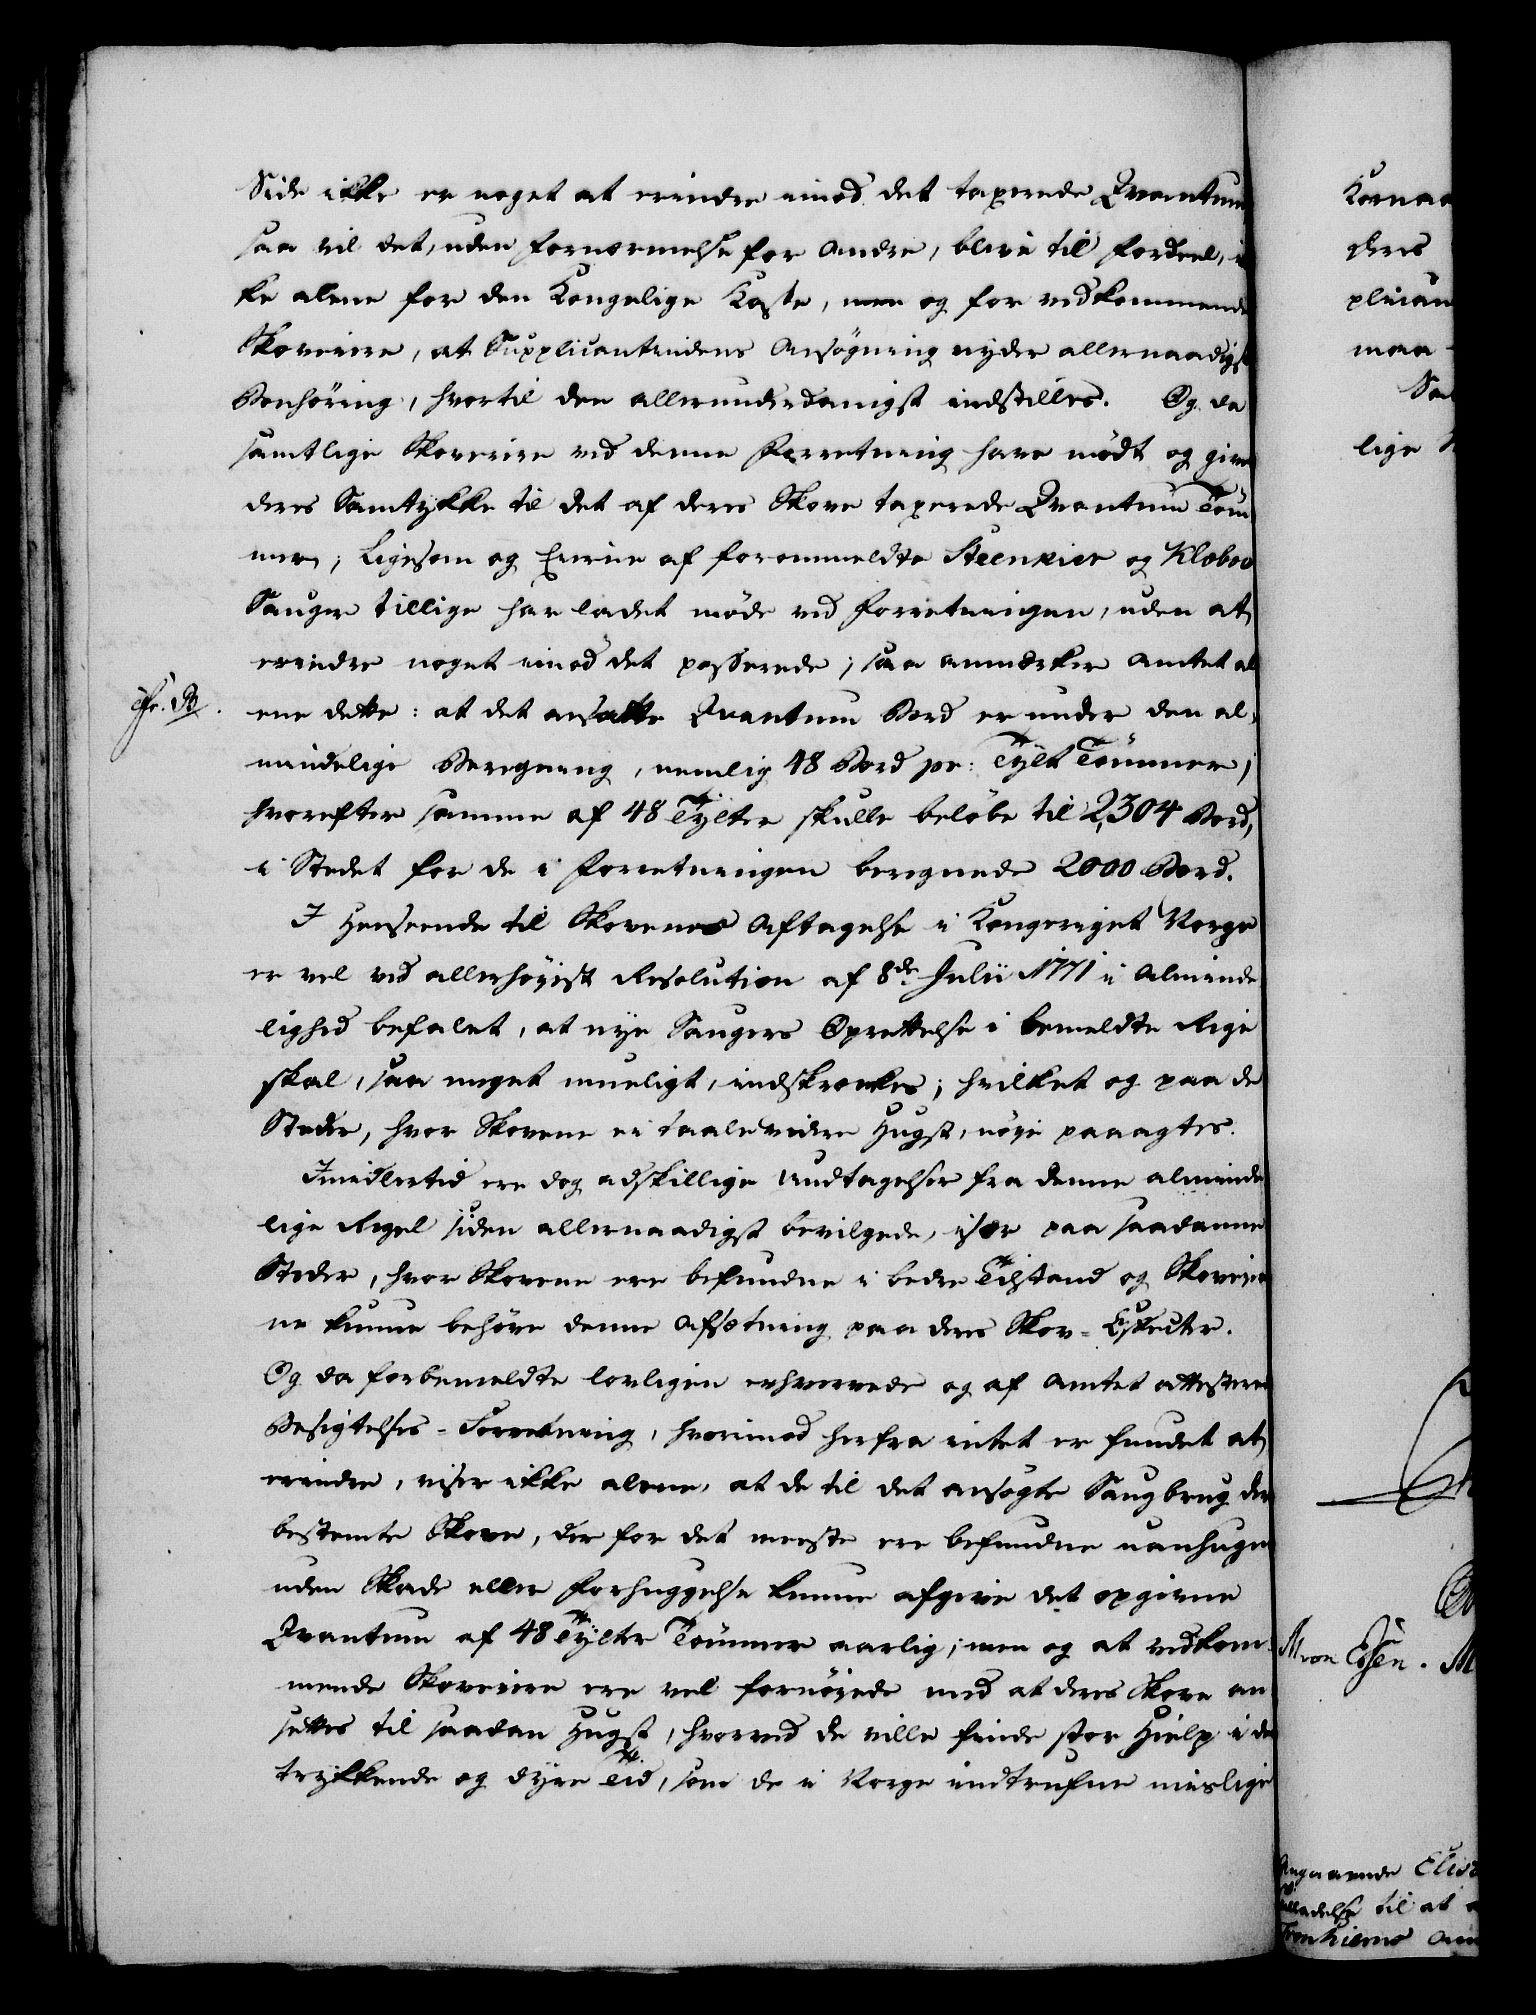 Side ikke er noget at erindre imod det taxerede Qvantum
saa vil det, uden Fornærmelse for Andre, blive til Fordeel, ik
ke alene for den Kongelige Kasse, men og for vedkommende
Skoveiere, at Supplicantindens Ansøgning nyder allernaadigst
Bønhøring, hvortil den allerunderdanigst indstilles. Og da
samtlige Skoveiere ved denne Forretning have mødt og givet
deres Samtykke til det af deres Skove taxerede Qvantum Töm
mer; Ligesom og Eierne af forommeldte Steenkier og Klæboe
Sauger tillige har ladet møde ved Forretningen, uden at
erindre noget imod det passerede; saa anmærker Amtet al
ene dette: at det ansatte Qvantum Bord er under den al-
mindelige Beregning, nemlig 48 Bord pr: Tylt Tömmer,
hvorefter samme af 48 Tylter skulle beløbe til 2,304 Bord,
i Stedet for de i Forretningen beregnede 2000 Bord.
I Henseende til Skovenes Aftagelse i Kongeriget Norge
er vel ved allerhøiest Resolution af 8de Julii 1771 i Alminde
lighed befalet, at nye Saugers Oprettelse i bemeldte Rige
skal, saa meget mueligt, indskrænkes; hvilket og paa de
Steder, hvor Skovene ei taale videre Hugst, nøie paaagtes.
Imidlertid ere dog adskillige Undtagelser fra denne alminde
lige Regel siden allernaadigst bevilgede, især paa saadanne
Steder, hvor Skovene ere befundne i bedre Tilstand og Skoveier
ne kunne behøve denne Afsætning paa deres Skov-Effecter.
Og da forbemeldte lovligen erhvervede og af Amtet attesterede
Besigtelses-Forretning, hvorimod herfra intet er fundet at
erindre, viser ikke alene, at de til det ansøgte Saugbrug der
bestemte Skove, der for det meeste ere befundne uanhugne
uden Skade eller Forhuggelse kunne afgive det opgivne
Qvantum af 48 Tylter Tömmer aarlig; men og at vedkom-
mende Skoveiere ere vel fornøiede med at deres Skove an
sættes til saadan Hugst, hvorved de ville finde stor Hielp i de
trykkende og dyre Tid, som de i Norge indtrufne mislige
Cfr. B.
deres
maa
lige
von Essen. M
Angaaende Elisa
til at